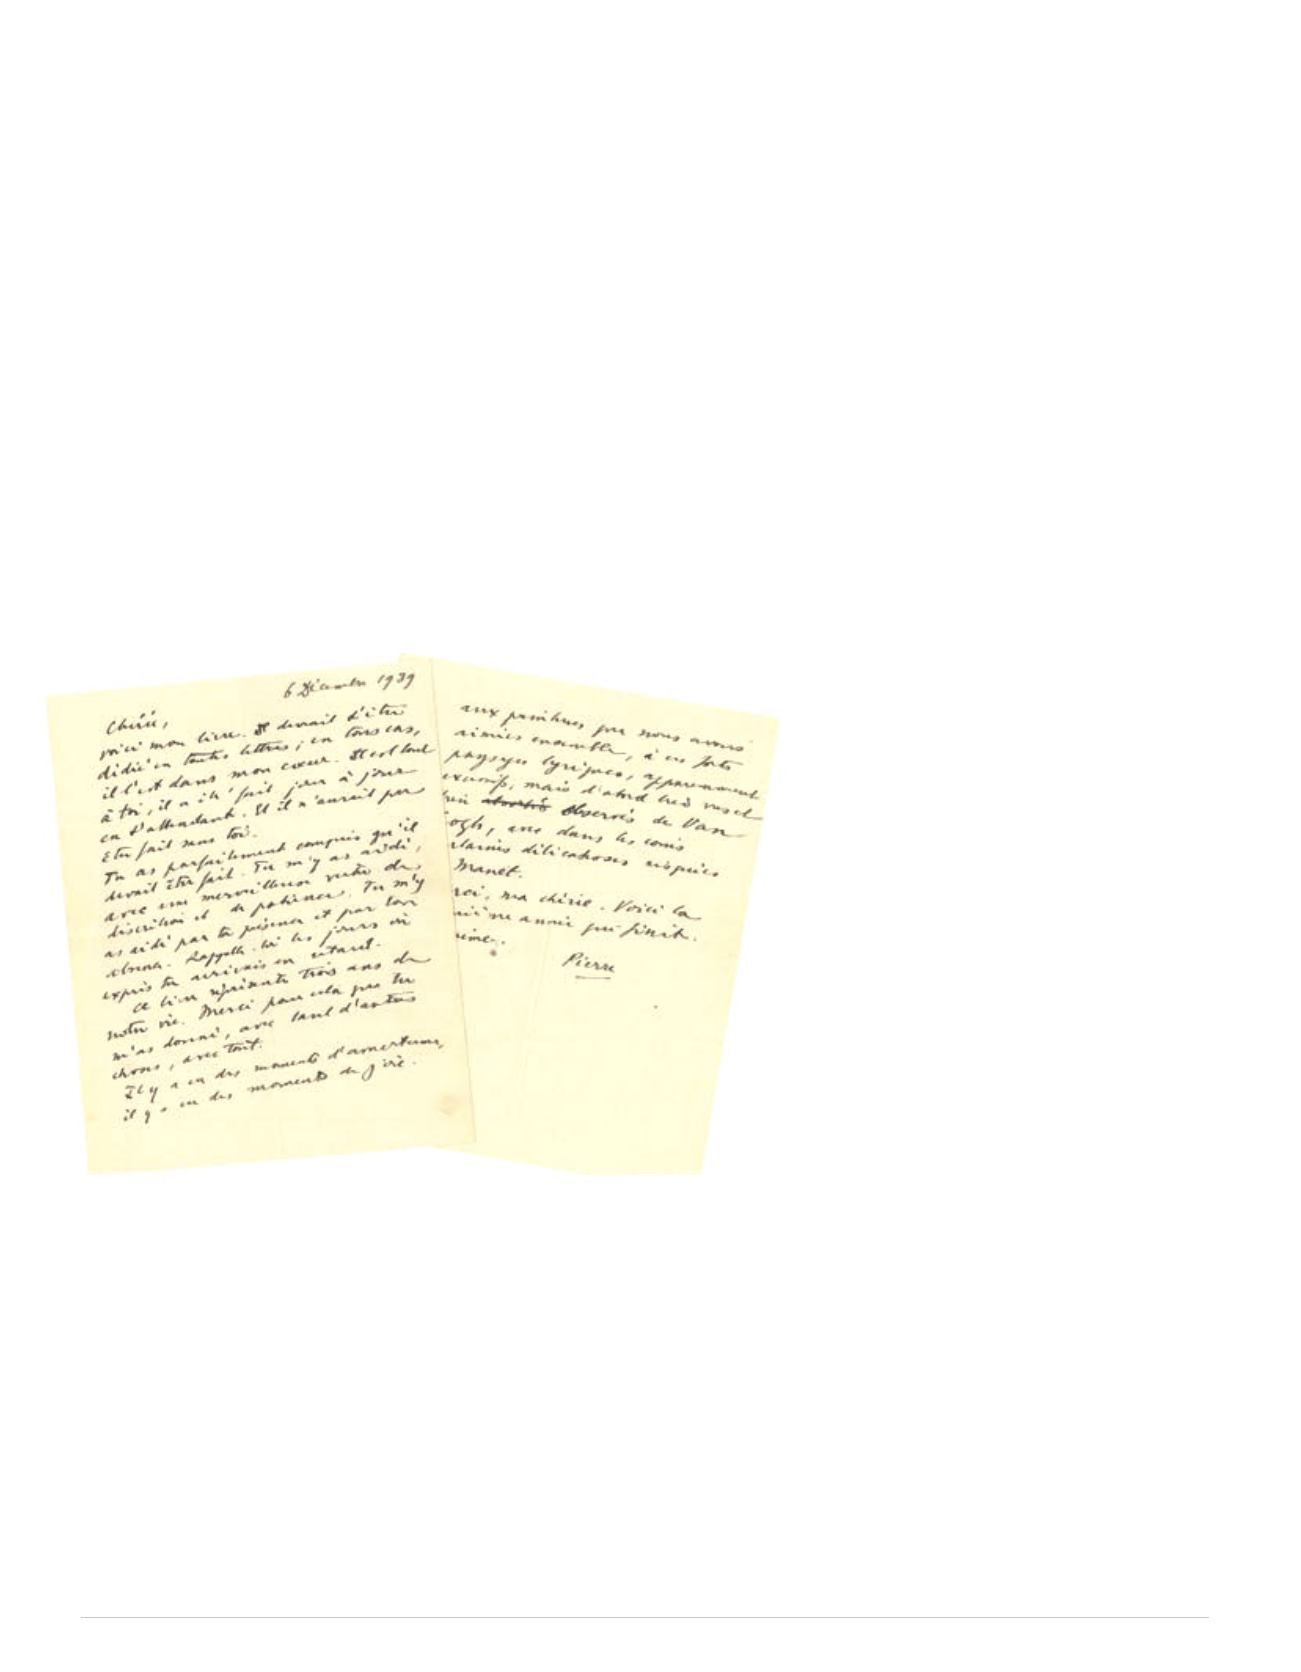 6 Décembre 1939
Chérie,
voici mon livre. Il devrait t'être
dédié en toutes lettres ; en tous cas,
il l'est dans mon cœur. Il est tout
à toi, il a été fait jour à jour
en t'attendant. Et il n'aurait pas
été fait sans toi.
Tu as parfaitement compris qu'il
devait être fait. Tu m'y as aidé,
avec une merveilleuse vertu de
discrétion et de patience. Tu m'y
as aidé par ta présence et par ton
absence. Rappelle-toi les jours où
exprès tu arrivais en retard.
Ce livre représente trois ans de
notre vie. Merci pour cela que tu
m'as donné, avec tant d'autres
choses, avec tout.
Il y a eu des moments d'amertume,
il y a eu des moments de joie.
aux peintures que nous avons
aimées ensemble, à ces forts
paysages lyriques, apparemment
excessifs, mais d'abord
observés de Van
ogh, avec dans les coins
rtaines délicatesses exquises
Manet.
rci, ma chérie. Voici la
ième année qui finit.
Pierre